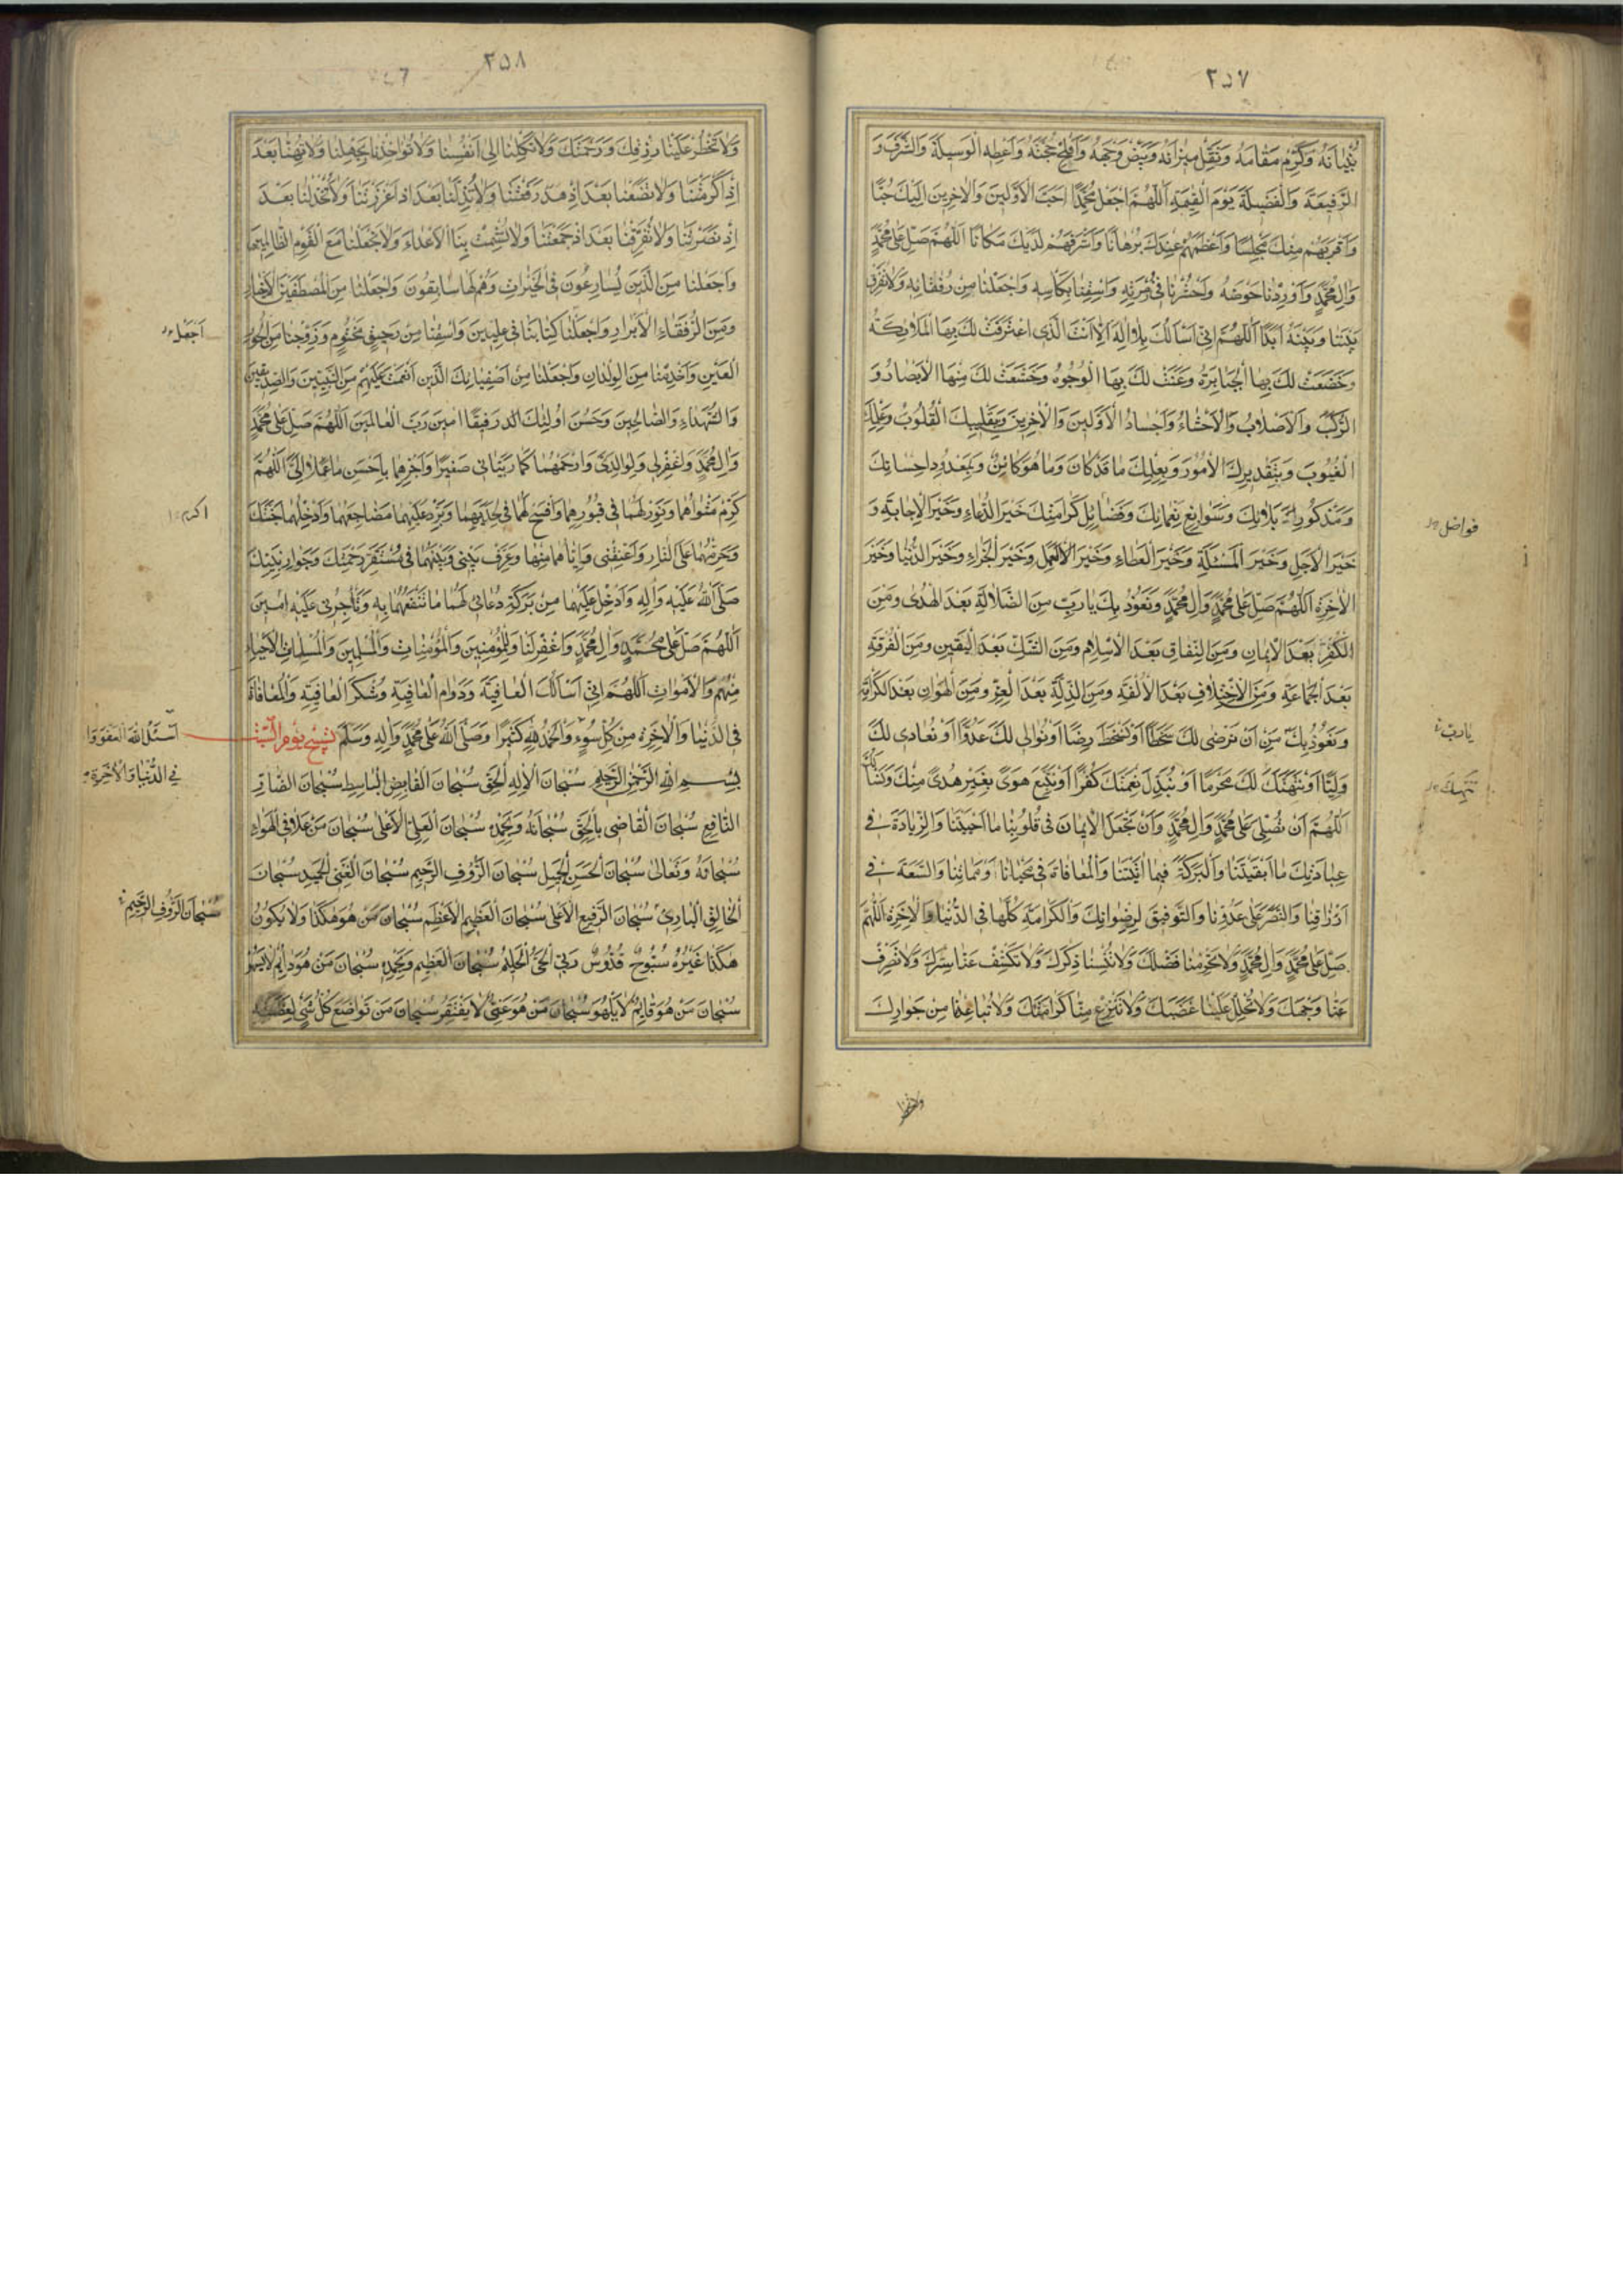 ٢٥٧
بُنْيَانَهُ وَكَرِّمْ مَقَامَهُ وَثَقِّلْ مِيزَانَهُ وَبَيِّضْ وَجْهَهُ وَأَفْلِجْ حُجَّتَهُ وَأَعْطِهِ الْوَسِيلَةَ وَالشَّرَفَ وَ
الرَّفِيعَةَ وَالْفَضِيلَةَ يَوْمَ الْقِيٰمَةِ اَللّٰهُمَّ اجْعَلْ مُحَمَّدًا اَحَبَّ الْاَوَّلِينَ وَالْاٰخِرِينَ اِلَيْكَ حُبًّا
وَاَقْرَبَهُمْ مِنْكَ مَجْلِسًا وَاَعْظَمَهُمْ عِنْدَكَ بُرْهَانًا وَاَشْرَفَهُمْ لَدَيْكَ مَكَانًا اَللّٰهُمَّ صَلِّ عَلٰى مُحَمَّدٍ
وَاٰلِ مُحَمَّدٍ وَاَوْرِدْنَا حَوْضَهُ وَاحْشُرْنَا فِى زُمْرَتِهِ وَاسْقِنَا بِكَاْسِهِ وَاجْعَلْنَا مِنْ رُفَقَائِهِ وَلَا تُفَرِّقْ
بَيْنَنَا وَبَيْنَهُ اَبَدًا اَللّٰهُمَّ اِنِّى اَسْاَلُكَ بِلَا اِلٰهَ اِلَّا اَنْتَ الَّذِى اعْتَرَفَتْ لَكَ بِهَا الْمَلَائِكَةُ
وَخَضَعَتْ لَكَ بِهَا الْجَبَابِرَةُ وَعَنَتْ لَكَ بِهَا الْوُجُوهُ وَخَشَعَتْ لَكَ مِنْهَا الْاَبْصَارُ وَ
الرُّكَبُ وَالْاَصْلَابُ وَالْاَحْشَاءُ وَاَجْسَادُ الْاَوَّلِينَ وَالْاٰخِرِينَ وَبِتَقْلِيبِكَ الْقُلُوبَ وَعِلْمِكَ
الْغُيُوبَ وَبِتَقْدِيرِكَ الْاُمُورَ وَبِعِلْمِكَ مَا قَدْ كَانَ وَمَا هُوَ كَائِنٌ وَبِمَعْدُودِ اِحْسَانِكَ
وَمَذْكُورِ بَلَائِكَ وَسَوَابِغِ نَعْمَائِكَ وَفَضَائِلِ كَرَامَتِكَ خَيْرَ الدُّعَاءِ وَخَيْرَ الْاِجَابَةِ وَ
فواضل
خَيْرَ الْاَجَلِ وَخَيْرَ الْمَسْئَلَةِ وَخَيْرَ الْعَطَاءِ وَخَيْرَ الْعَمَلِ وَخَيْرَ الْجَزَاءِ وَخَيْرَ الدُّنْيَا وَخَيْرَ
الْاٰخِرَةِ اَللّٰهُمَّ صَلِّ عَلٰى مُحَمَّدٍ وَاٰلِ مُحَمَّدٍ وَنَعُوذُ بِكَ يَا رَبِّ مِنَ الضَّلَالَةِ بَعْدَ الْهُدٰى وَمِنَ
الْكُفْرِ بَعْدَ الْاِيمَانِ وَمِنَ النِّفَاقِ بَعْدَ الْاِسْلَامِ وَمِنَ الشَّكِّ بَعْدَ الْيَقِينِ وَمِنَ الْفُرْقَةِ
بَعْدَ الْجَمَاعَةِ وَمِنَ الْاِخْتِلَافِ بَعْدَ الْاُلْفَةِ وَمِنَ الذِّلَّةِ بَعْدَ الْعِزِّ وَمِنَ الْهَوَانِ بَعْدَ الْكَرَامَةِ
وَنَعُوذُ بِكَ مِنْ اَنْ نَرْضٰى لَكَ سَخَطًا اَوْ نَسْخَطَ رِضًا اَوْ نُوَالِىَ لَكَ عَدُوًّا اَوْ نُعَادِىَ لَكَ
يارب
وَلِيًّا اَوْ نَنْتَهِكَ لَكَ مَحْرَمًا اَوْ نُبَدِّلَ نِعْمَتَكَ كُفْرًا اَوْ نَتَّبِعَ هَوًى بِغَيْرِ هُدًى مِنْكَ
نَنْتَهِكَ
اَللّٰهُمَّ اَنْ تُصَلِّىَ عَلٰى مُحَمَّدٍ وَاٰلِ مُحَمَّدٍ وَاَنْ تَجْعَلَ الْاِيمَانَ فِى قُلُوبِنَا مَا اَحْيَيْتَنَا وَالزِّيَادَةَ فِى
عِبَادَتِكَ مَا اَبْقَيْتَنَا وَالْبَرَكَةَ فِيمَا اٰتَيْتَنَا وَالْمُعَافَاةَ فِى مَحْيَانَا وَمَمَاتِنَا وَالسَّعَةَ فِى
اَرْزَاقِنَا وَالنَّصْرَ عَلٰى عَدُوِّنَا وَالتَّوْفِيقَ لِرِضْوَانِكَ وَالْكَرَامَةَ كُلَّهَا فِى الدُّنْيَا وَالْاٰخِرَةِ اَللّٰهُمَّ
صَلِّ عَلٰى مُحَمَّدٍ وَاٰلِ مُحَمَّدٍ وَلَا تَحْرِمْنَا فَضْلَكَ وَلَا تُنْسِنَا ذِكْرَكَ وَلَا تَكْشِفْ عَنَّا سِتْرَكَ وَلَا تَصْرِفْ
عَنَّا وَجْهَكَ وَلَا تُحْلِلْ عَلَيْنَا غَضَبَكَ وَلَا تَنْزِعْ مِنَّا كَرَامَتَكَ وَلَا تُبَاعِدْنَا مِنْ جِوَارِكَ
٢٥٨
وَلَا تَحْظُرْ عَلَيْنَا رِزْقَكَ وَرَحْمَتَكَ وَلَا تَكِلْنَا اِلٰى اَنْفُسِنَا وَلَا تُؤَاخِذْنَا بِجَهْلِنَا وَلَا تُهِنَّا بَعْدَ
اِذْ اَكْرَمْتَنَا وَلَا تَضَعْنَا بَعْدَ اِذْ رَفَعْتَنَا وَلَا تُذِلَّنَا بَعْدَ اِذْ اَعْزَزْتَنَا وَلَا تَخْذُلْنَا بَعْدَ
اِذْ نَصَرْتَنَا وَلَا تُفَرِّقْنَا بَعْدَ اِذْ جَمَعْتَنَا وَلَا تُشْمِتْ بِنَا الْاَعْدَاءَ وَلَا تَجْعَلْنَا مَعَ الْقَوْمِ الظَّالِمِينَ
وَاجْعَلْنَا مِنَ الَّذِينَ يُسَارِعُونَ فِى الْخَيْرَاتِ وَهُمْ لَهَا سَابِقُونَ وَاجْعَلْنَا مِنَ الْمُصْطَفَيْنَ الْاَخْيَارِ
وَمِنَ الرُّفَقَاءِ الْاَبْرَارِ وَاجْعَلْ كِتَابَنَا فِى عِلِّيِّينَ وَاسْقِنَا مِنْ رَحِيقٍ مَخْتُومٍ وَزَوِّجْنَا مِنَ الْحُورِ
اجعل
الْعِينِ وَاَخْدِمْنَا مِنَ الْوِلْدَانِ وَاجْعَلْنَا مِنْ اَصْفِيَائِكَ الَّذِينَ اَنْعَمْتَ عَلَيْهِمْ مِنَ النَّبِيِّينَ وَالصِّدِّيقِينَ
وَالشُّهَدَاءِ وَالصَّالِحِينَ وَحَسُنَ اُولٰئِكَ رَفِيقًا اٰمِينَ رَبَّ الْعَالَمِينَ اَللّٰهُمَّ صَلِّ عَلٰى مُحَمَّدٍ
وَاٰلِ مُحَمَّدٍ وَاغْفِرْ لِى وَلِوَالِدَىَّ وَارْحَمْهُمَا كَمَا رَبَّيَانِى صَغِيرًا وَاَجْزِهِمَا بِاَحْسَنِ مَا عَمِلَا اِلَىَّ اَللّٰهُمَّ
كَرِّمْ مَثْوٰاهُمَا وَنَوِّرْ لَهُمَا فِى قُبُورِهِمَا وَافْسَحْ لَهُمَا فِى لَحْدَيْهِمَا وَبَرِّدْ عَلَيْهِمَا مَضَاجِعَهُمَا وَاَدْخِلْهُمَا جَنَّتَكَ
اكرم
وَحَرِّمْهُمَا عَلَى النَّارِ وَاَعْتِقْنِى وَاِيَّاهُمَا مِنْهَا وَعَرِّفْ بَيْنِى وَبَيْنَهُمَا فِى مُسْتَقَرِّ رَحْمَتِكَ وَجِوَارِ نَبِيِّكَ
صَلَّى اللهُ عَلَيْهِ وَاٰلِهِ وَاَدْخِلْ عَلَيْهِمَا مِنْ بَرَكَةِ دُعَائِى لَهُمَا مَا تَنْفَعُهُمَا بِهِ وَتَاْجُرُنِى عَلَيْهِ اٰمِينَ
اَللّٰهُمَّ صَلِّ عَلٰى مُحَمَّدٍ وَاٰلِ مُحَمَّدٍ وَاغْفِرْ لَنَا وَلِلْمُؤْمِنِينَ وَالْمُؤْمِنَاتِ وَالْمُسْلِمِينَ وَالْمُسْلِمَاتِ الْاَحْيَاءِ
مِنْهُمْ وَالْاَمْوَاتِ اَللّٰهُمَّ اِنِّى اَسْاَلُكَ الْعَافِيَةَ وَدَوَامَ الْعَافِيَةِ وَشُكْرَ الْعَافِيَةِ وَالْمُعَافَاةَ
فِى الدُّنْيَا وَالْاٰخِرَةِ مِنْ كُلِّ سُوءٍ وَالْحَمْدُ لِلّٰهِ كَثِيرًا وَصَلَّى اللهُ عَلٰى مُحَمَّدٍ وَاٰلِهِ وَسَلَّمَ تسبيح يوم السبت
اَسْئَلُ اللهَ الْعَفْوَ وَا
فِى الدُّنْيَا وَالْاٰخِرَةِ
بِسْمِ اللهِ الرَّحْمٰنِ الرَّحِيمِ سُبْحَانَ الْاِلٰهِ الْحَقِّ سُبْحَانَ الْقَابِضِ الْبَاسِطِ سُبْحَانَ الضَّارِّ
النَّافِعِ سُبْحَانَ الْقَاضِى بِالْحَقِّ سُبْحَانَهُ وَبِحَمْدِهِ سُبْحَانَ الْعَلِىِّ الْاَعْلٰى سُبْحَانَ مَنْ عَلَا فِى الْهَوَاءِ
سُبْحَانَهُ وَتَعَالٰى سُبْحَانَ الْحَسَنِ الْجَمِيلِ سُبْحَانَ الرَّؤُفِ الرَّحِيمِ سُبْحَانَ الْغَنِىِّ الْحَمِيدِ سُبْحَانَ
الْخَالِقِ الْبَارِئِ سُبْحَانَ الرَّفِيعِ الْاَعْلٰى سُبْحَانَ الْعَظِيمِ الْاَعْظَمِ سُبْحَانَ مَنْ هُوَ هٰكَذَا وَلَا يَكُونُ
سُبْحَانَ الرَّؤُفِ الرَّحِيمِ
هٰكَذَا غَيْرُهُ سُبُّوحٌ قُدُّوسٌ رَبِّىَ الْحَىُّ الْحَلِيمُ سُبْحَانَ الْعَظِيمِ وَبِحَمْدِهِ سُبْحَانَ مَنْ هُوَ دَائِمٌ لَا يَسْهُو
سُبْحَانَ مَنْ هُوَ قَائِمٌ لَا يَلْهُو سُبْحَانَ مَنْ هُوَ غَنِىٌّ لَا يَفْتَقِرُ سُبْحَانَ مَنْ تَوَاضَعَ كُلُّ شَىْءٍ لِعَظَمَتِهِ